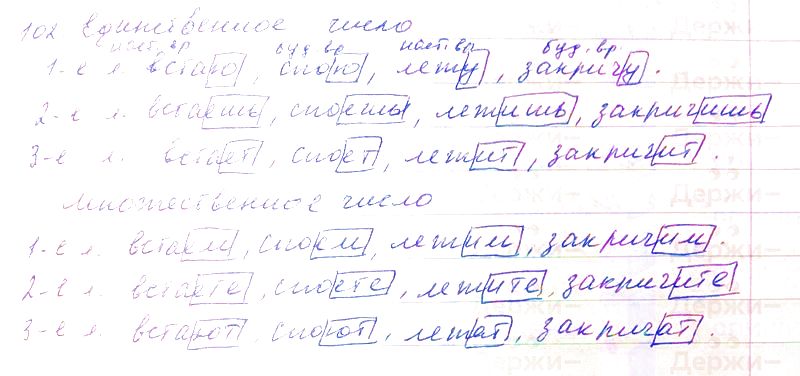 102 Единственное число
наст. вр. буд. вр. наст. вр. буд. вр.
1-е л. встаю, спою, лежу, закричу.
2-е л. встаешь, споешь, лежишь, закричишь
3-е л. встает, споет, лежит, закричит.
множественное число
1-е л. встаем, споем, лежим, закричим.
2-е л. встаете, споете, лежите, закричите
3-е л. встают, споют, лежат, закричат.
Держи—
Держи—
Держи—
Держи—